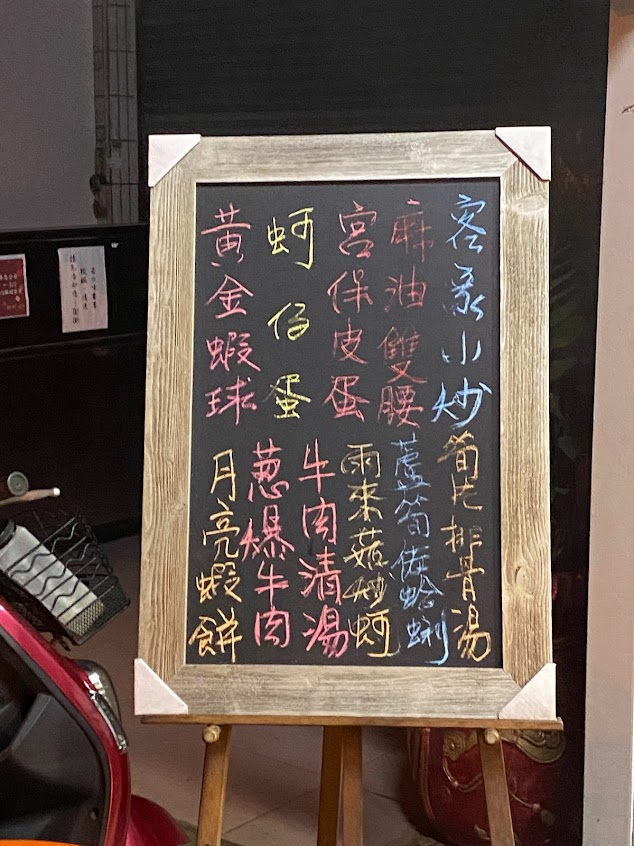 客家小炒
麻油雙腰
宮保皮蛋
蚵仔蛋
黃金蝦球
筍片排骨湯
蘆筍蛤蜊
雨來菇炒蚵
牛肉清湯
蔥爆牛肉
月亮蝦餅